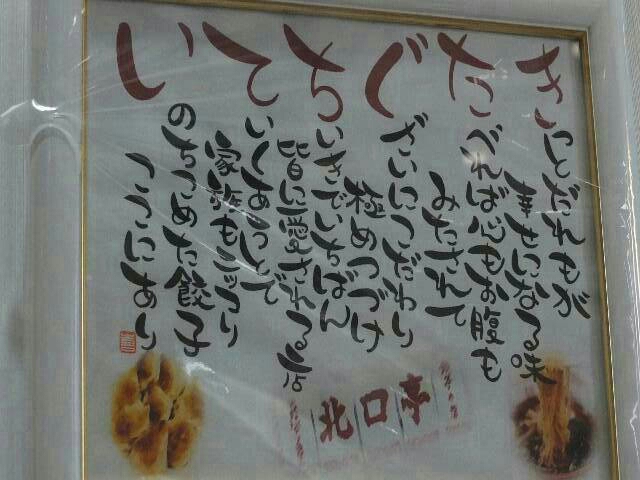 きっとだれもが
幸せになる味
たべれば心もお腹も
みたされて
ぐざいにこだわり
極めつづけ
ちいきでいちばん
皆に愛されてる店
ていくあうとで
家族もニッコリ
いのちつめた餃子
ここにあり
北口亭